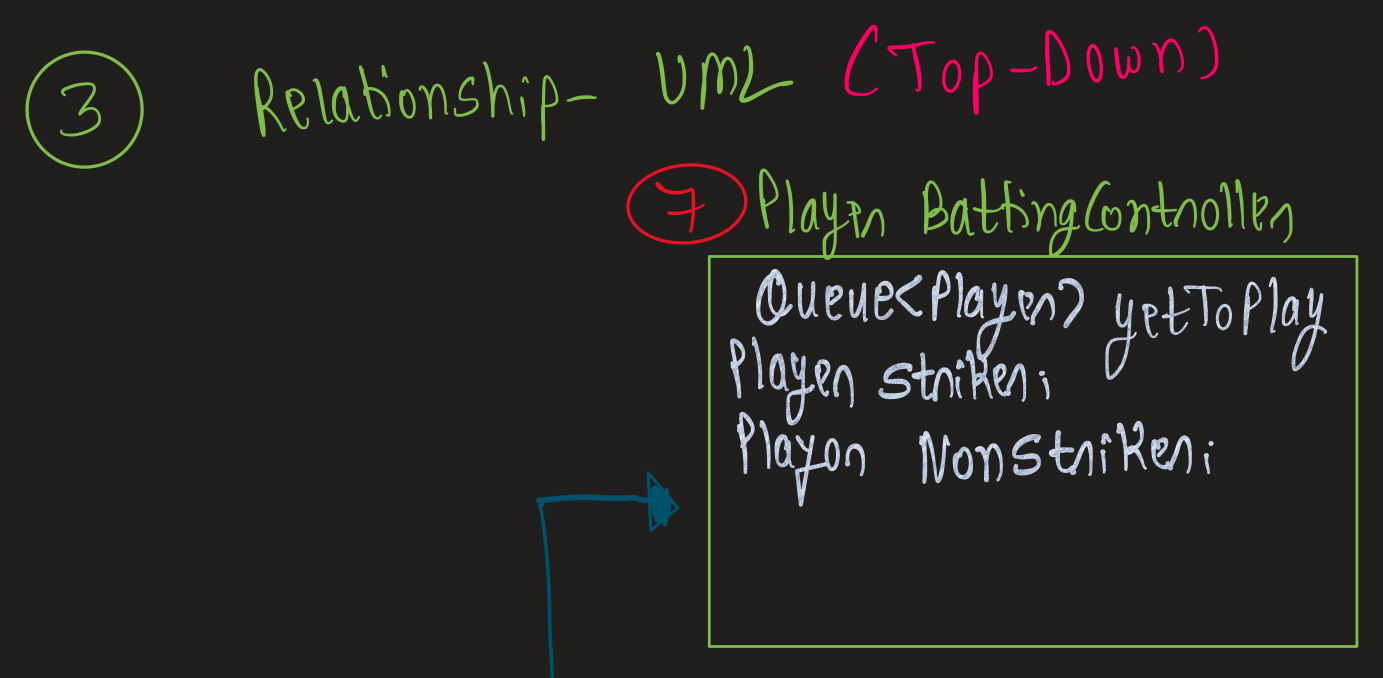 3 Relationship- UML (Top-Down)
7 Player BattingController
Queue<Player> yetToPlay
Player striker;
Player NonStriker;